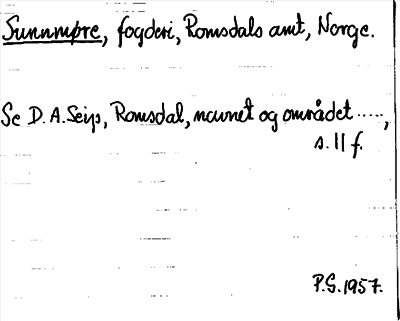 Sunnmøre, fogderi, Romsdals amt, Norge.
Se D. A. Seip, Romsdal, navnet og området .....,
s. 11 f.
P.G. 1957.